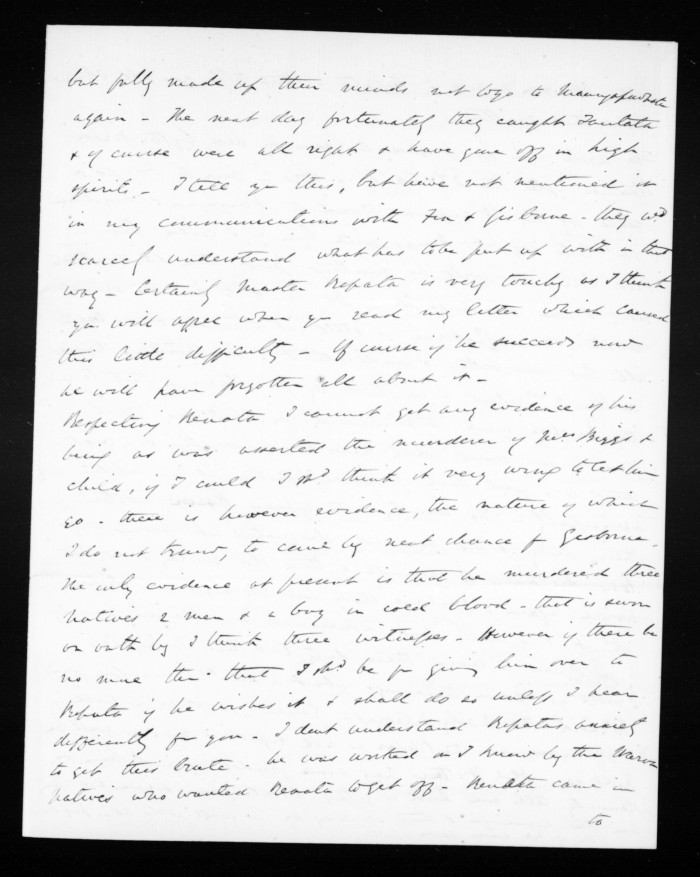 but fully made up their minds not to go to Maungapohatu
again - The next day fortunately they caught
& of course were all right & have gone off in high
spirits - I tell you this, but have not mentioned it
in my communications with Fox & Gisborne - they wd
scarcely understand what has to be put up with in that
way - Certainly Master Ropata is very touchy as I think
you will agree when you read my letter which caused
this little difficulty - Of course if he succeeds now
he will have forgotten all about it -
Respecting Renata I cannot get any evidence of his
being as was asserted the murderer of Mrs Biggs &
child, if I could I shd think it very wrong to let him
go - there is however evidence, the nature of which
I do not know, to come by next chance fr Gisborne.
The only evidence at present is that he murdered three
natives 2 men & a boy in cold blood - that is sworn
on oath by I think three witnesses - However if there be
no more than that I shd be for giving him over to
Ropata if he wishes it & shall do so unless I hear
differently fr you - I dont understand Ropatas anxiety
to get this brute - he was worked on I know by the
natives who wanted Renata to get off - Renata came in
to